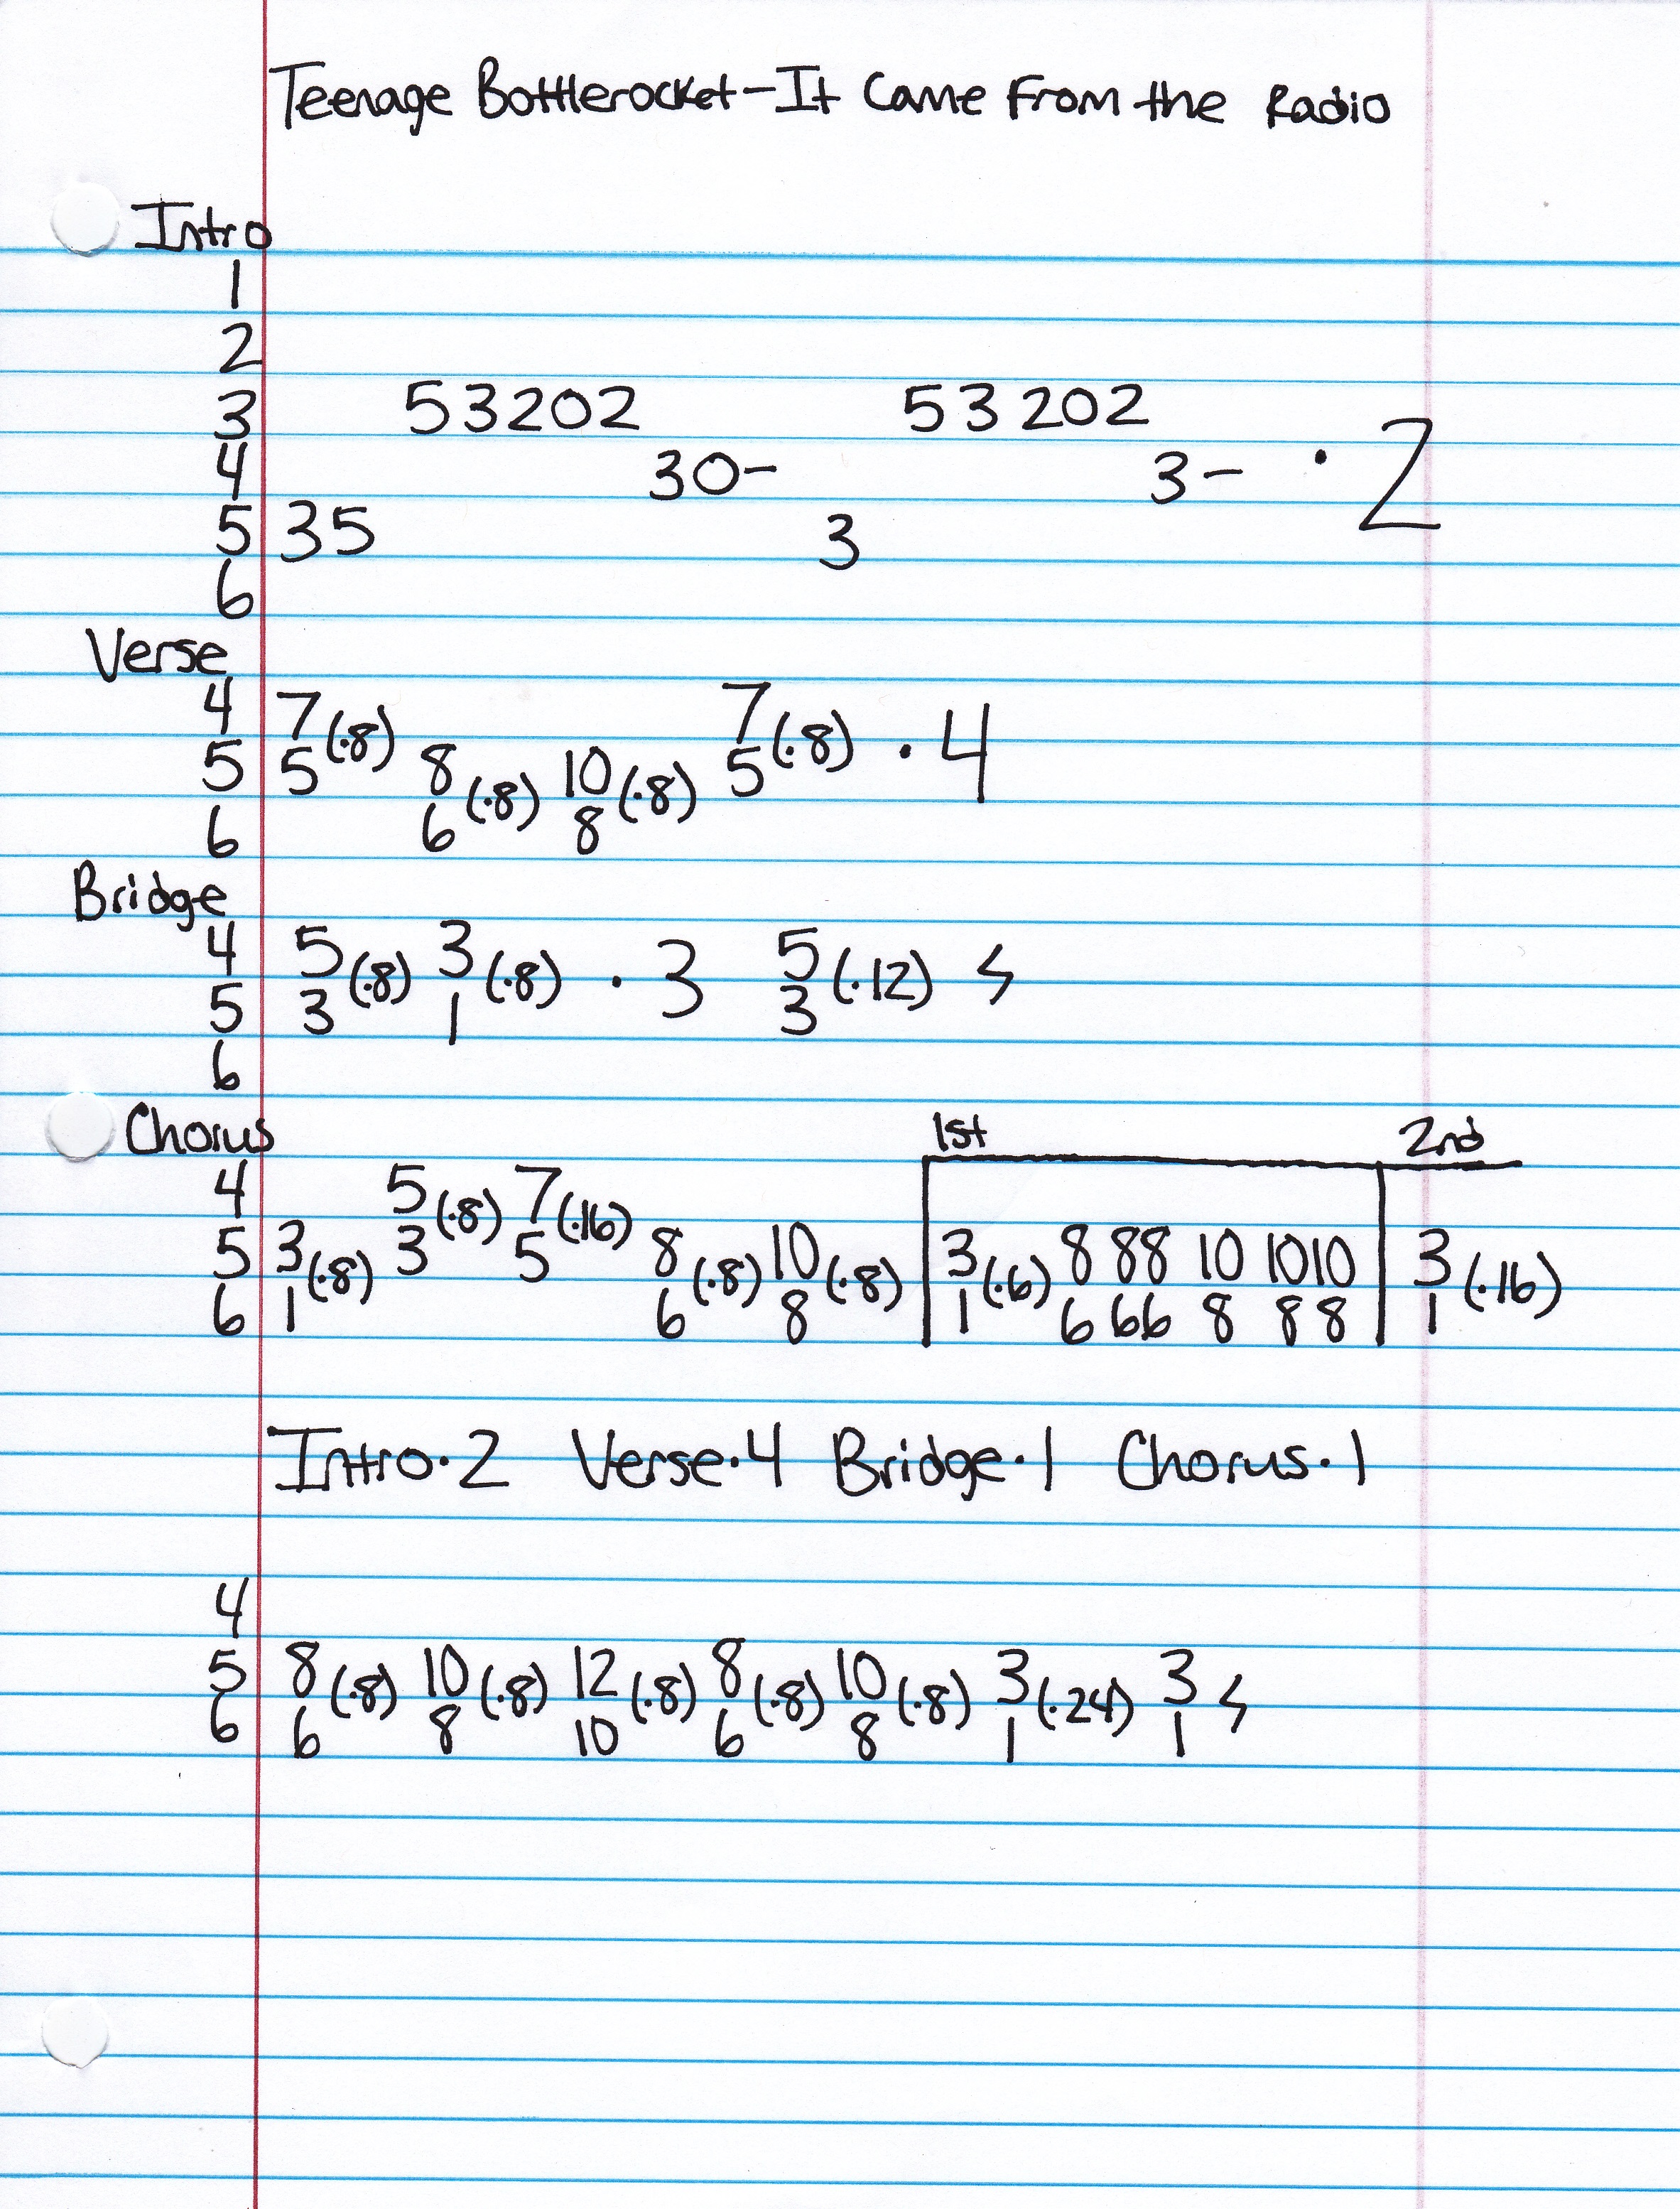 Teenage Bottlerocket-It Came From the Radio
Intro
1
2
3 53202 53202
4 30- 3- ·2
5 35 3
6
Verse
4 7(·8) 7(·8) ·4
5 5 8(·8) 10(·8) 5
6 6 8
Bridge
4 5(·8) 3(·8) ·3 5(·12) ϟ
5 3 1 3
6
Chorus 1st 2nd
4 5(·8) 7(·16)
5 3(·8) 3 5 8(·8) 10(·8) 3(·6) 8 88 10 1010 3(·16)
6 1 6 8 1 6 66 8 8 8 1
Intro·2 Verse·4 Bridge·1 Chorus·1
4
5 8(·8) 10(·8) 12(·8) 8(·8) 10(·8) 3(·24) 3 ϟ
6 6 8 10 6 8 1 1